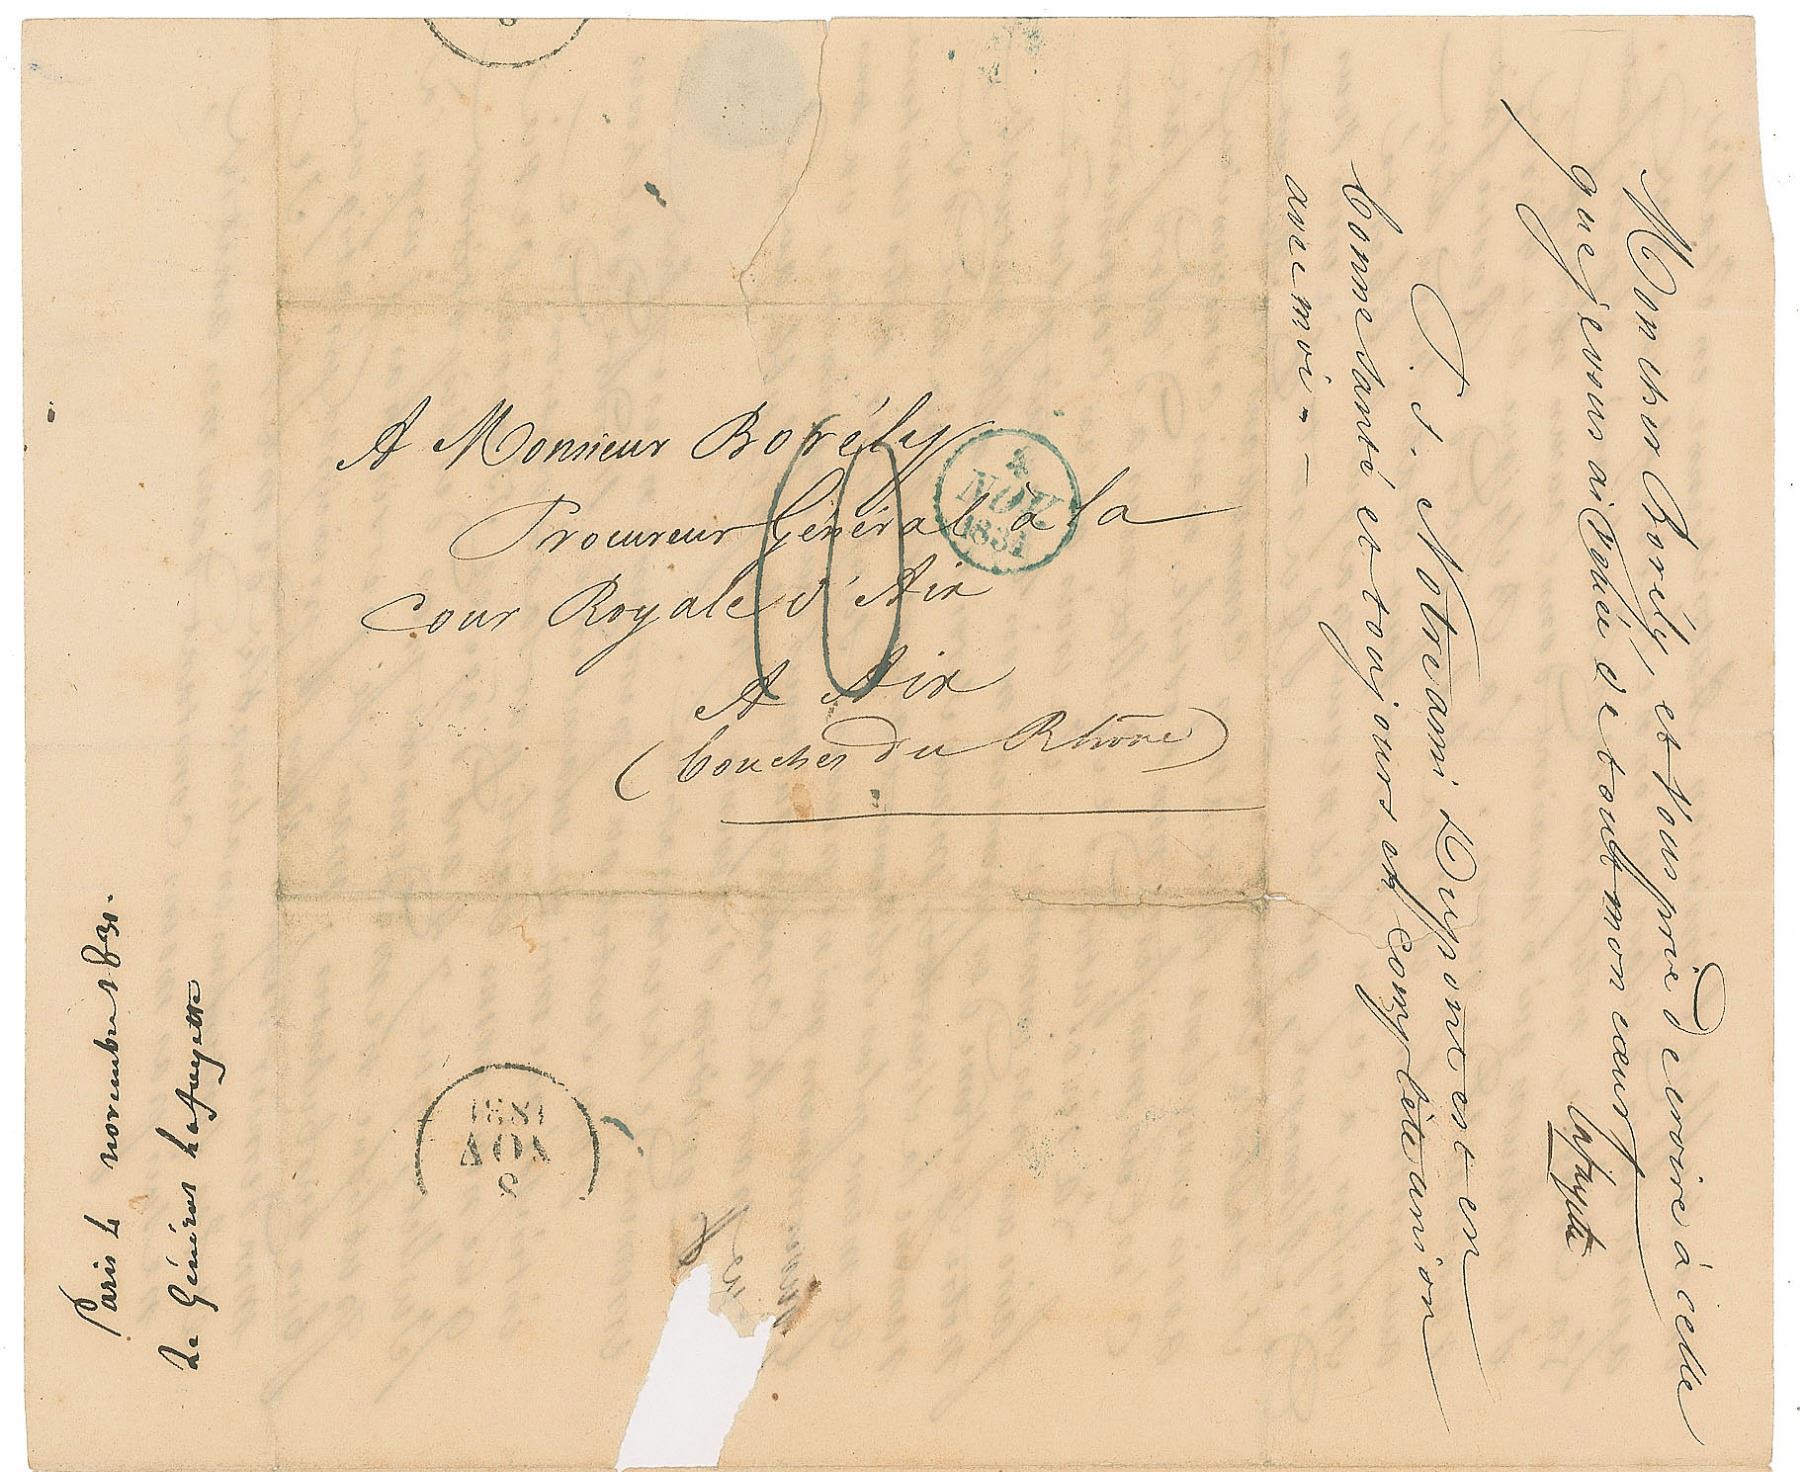 A Monsieur Borély
Procureur Général à la
Cour Royale d'Aix
A Aix
(bouches du Rhône)
4
NOV
1831
Monsieur Borély, et vous prie de croire à celle
que je vous ai vouée de tout mon cœur
Lafayette
P. S. Notre ami Dupont est en
bonne santé et toujours en complète union
avec moi. —
Paris 4 novembre 1831.
Le Général Lafayette
1831
NOV